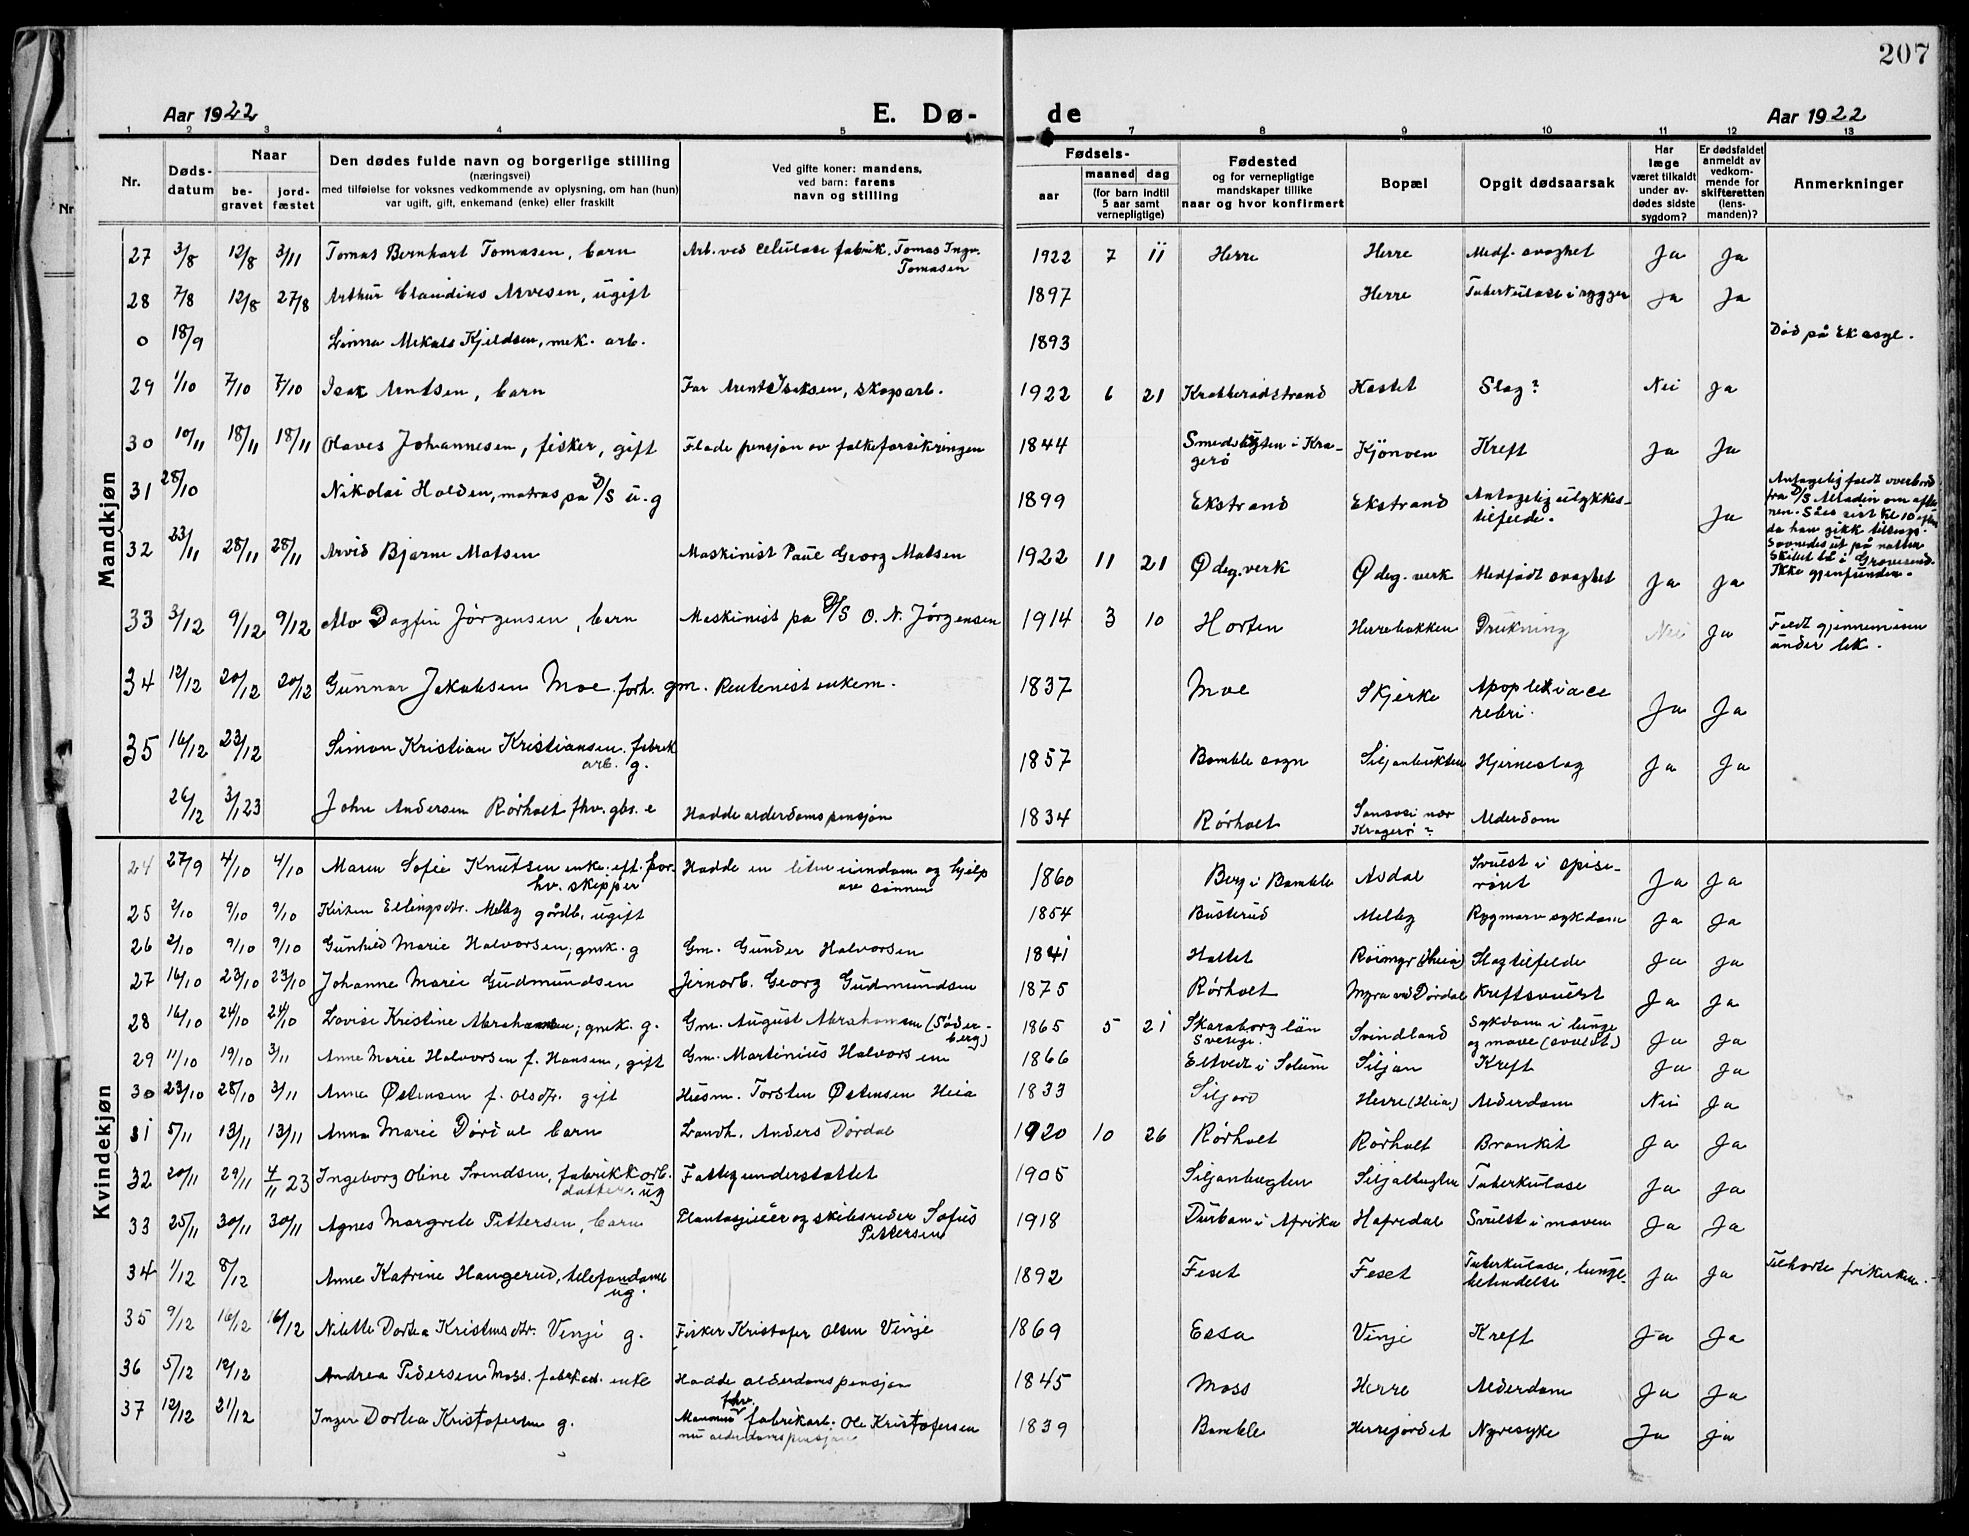 207
Aar 1922 E. Dø- de Aar 1922
1 2 3 4 5 7 8 9 10 11 12 13
Nr. Døds-datum Naar be-gravet jord-fæstet Den dødes fulde navn og borgerlige stilling (næringsvei) med tilføielse for voksnes vedkommende av oplysning, om han (hun) var ugift, gift, enkemand (enke) eller fraskilt Ved gifte koner: mandens, ved barn: farens navn og stilling Fødsels- aar maaned dag (for barn indtil 5 aar samt vernepligtige) Fødested og for vernepligtige mandskaper tillike naar og hvor konfirmert Bopæl Opgit dødsaarsak Har læge været tilkaldt under av-dødes sidste sygdom? Er dødsfaldet anmeldt av vedkom-mende for skifteretten (lens-manden)? Anmerkninger
Mandkjøn
27 3/8 12/8 3/11 Tomas Bernhart Tomasen, barn Arb. ved celulose fabrik. Tomas Ingv. Tomasen 1922 7 11 Herre Herre Medf. svaghet Ja Ja
28 7/8 12/8 27/8 Arthur Claudius Arvesen, ugift 1897 Herre Tuberkulose i rygger Ja Ja
0 18/9 Linna Mekals Kjeldsen, mek. arb. 1893 Død på Ek asyl.
29 1/10 7/10 7/10 Isak Arntsen, barn Far Arent Isaksen, skogarb. 1922 6 21 Krabberødstrand Kastet Slag? Nei Ja
30 10/11 18/11 18/11 Olaves Johannesen, fisker, gift Flade pensjon av folkeforsikringen 1844 i Kra-gerø Kjønøen Kreft Ja Ja
31 28/10 Nikolai Holden, matros på D/S u. g 1899 Ekstrand Ekstrand Antagelig ulykkes-tilfelde. Ja Antagelig faldt overbord fra D/S Alladin om afte-nen. Såes sist kl 10 aften da han gikk tilkøys. Savnedes ut på natten Skibet lå i Gravesend. Ikke gjenfunden.
32 23/11 28/11 28/11 Arvid Bjarne Matsen Maskinist Paul Georg Matsen 1922 11 21 Ødeg. verk Ødeg. verk Medfødt svaghet Ja Ja
33 3/12 9/12 9/12 Alv Dagfin Jørgensen, barn Maskinist på D/S O. N. Jørgensen 1914 3 10 Horten Herrebakken Drukning Nei Ja Faldt gjennem isen under lek.
34 12/12 20/12 20/12 Gunnar Jakobsen Moe. forh. gm. Rentenist enkem. 1837 Moe Skjerke Apoplexia ce rebri. Ja Ja
35 16/12 23/12 Simon Kristian Kristiansen. fabrik arb. g. 1857 Bamble sogn Siljanbukten Hjerneslag Ja Ja
26/12 3/1 23 John Andersen Rørholt fhv. gbr. e Hadde alderdomspensjon 1834 Rørholt nær Kragerø? Alderdom
Kvindekjøn
24 27/9 4/10 4/10 Maren Sofie Knutsen enke. eft. for. hv. skipper Hadde en liten eiendom og hjelp av sønnen 1860 Berg i Bamble Asdal Svulst i spise-røret Ja Ja
25 2/10 9/10 9/10 Kirsten Ellingsdtr. Melby gårdb. ugift 1854 Busterud Melby Rygmarv sykdom Ja Ja
26 2/10 9/10 9/10 Gunhild Marie Halvorsen, gmk. g Gm. Gunder Halvorsen 1841 Holtet Røimyr (Heia) Slagtilfelde Ja Ja
27 16/10 23/10 23/10 Johanne Marie Gudmundsen Jernarb. Georg Gudmundsen 1875 Rørholt Myra ved Dørdal Kreftsvulst Ja Ja
28 16/10 24/10 24/10 Lovise Kristine Abrahamsen; gmk. g. Gm. August Abrahamsen (Søder-berg) 1865 5 21 Skaraborg län Sverige. Svindland Sykdom i lunge og mave (svulst) Ja Ja
29 11/10 19/10 3/11 Anne Marie Halvorsen f. Hansen, gift Gm. Martinius Halvorsen 1866 Eltvedt i Solum Siljan Kreft Ja Ja
30 23/10 28/10 3/11 Anne Østensen f. Olsdtr. gift Husm. Torsten Østensen Heia 1833 Siljord Herre (Heia) Alderdom Nei Ja
31 5/11 13/11 13/11 Anna Marie Dørdal barn Landh. Anders Dørdal 1920 10 26 Rørholt Rørholt Bronkit Ja Ja
32 20/11 29/11 4/11 23 Ingeborg Oline Svendsen, fabrikkarb. datter. ug Fattigunderstøttet 1905 Siljanbugten Siljabugten Tuberkulose Ja Ja
33 25/11 30/11 30/11 Agnes Margrete Pettersen, barn Plantasjeeier og skibsreder Sofus Pettersen 1918 Durban i Afrika Hafredal Svulst i maven Ja Ja
34 1/12 8/12 Anne Katrine Haugerud, telefondame ug. 1892 Feset Feset Tuberkulose, lunge-betendelse Ja Ja Tilhørte frikirken.
35 9/12 16/12 16/12 Nilette Dortea Kristensdtr. Vinje g. Fisker Kristofer Olsen Vinje 1869 Essa Vinje Kreft Ja Ja
36 5/12 12/12 Andrea Pedersen Moss. fabrkarb. enke Hadde alderdomspensjon 1845 Moss Herre Alderdom Ja Ja
37 12/12 21/12 Inger Dortea Kristofersen g. fhv. fabrikarb. Ole Kristofersen nu alderdomspensjon 1839 Bamble Herrejordet Nyresyke Ja Ja